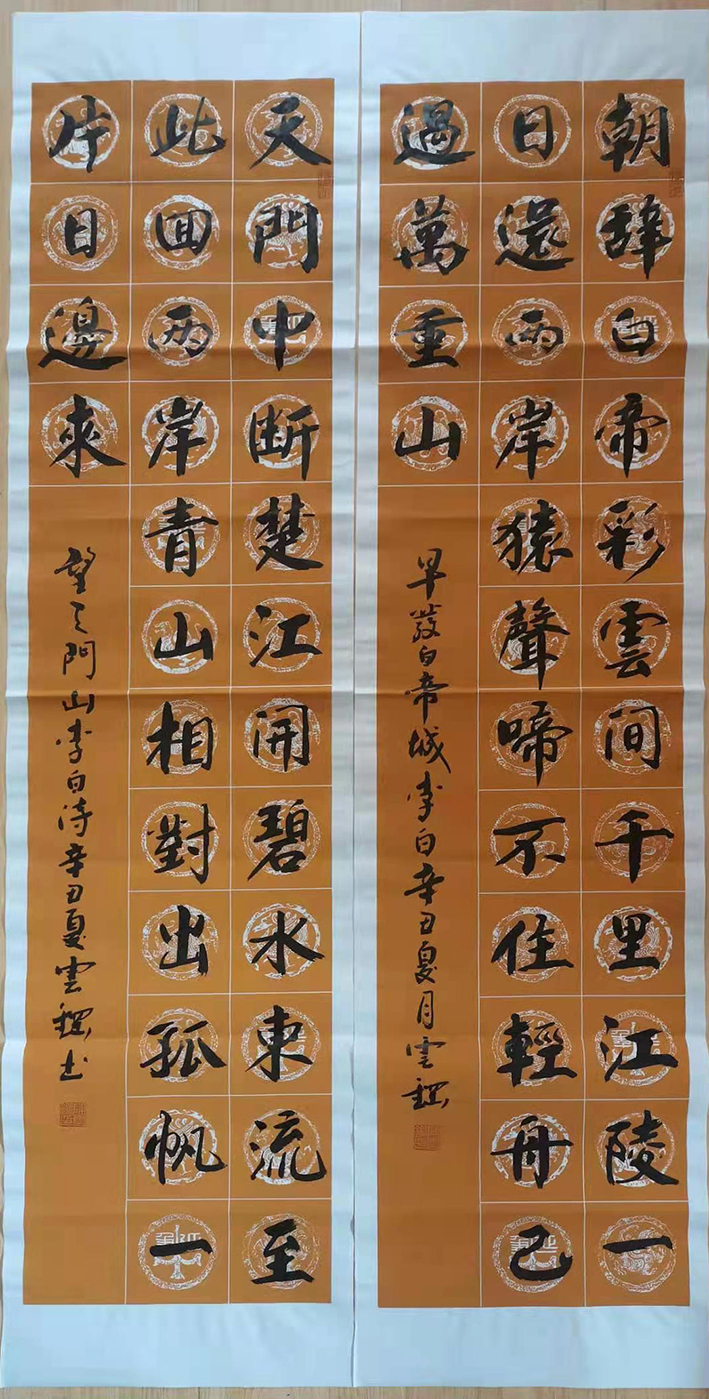 朝辞白帝彩雲间千里江陵一
日還兩岸猿聲啼不住輕舟已
過萬重山
早發白帝城李白辛丑夏月雲
天門中断楚江開碧水東流至
此回兩岸青山相對出孤帆一
片日邊來
望天門山李白詩辛丑夏雲